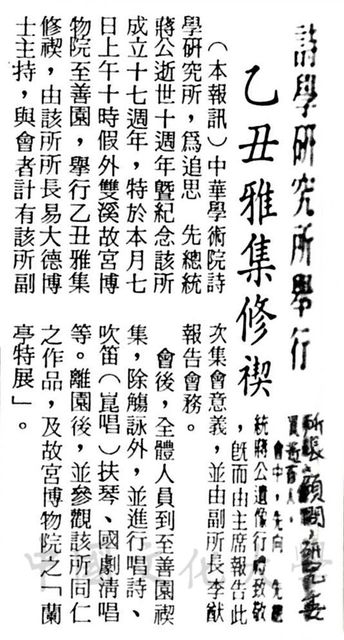 詩學研究所舉行
乙丑雅集修禊
（本報訊）中華學術院詩
學研究所，爲追思　先總統
蔣公逝世十週年暨紀念該所
成立十七週年，特於本月七
日上午十時假外雙溪故宮博
物院至善園，舉行乙丑雅集
修禊，由該所所長易大德博
士主持，與會者計有該所副
所長、顧問、研究委
員近百人。
會中，先向　先總
統蔣公遺像行時致敬
，旣而由主席報告此
次集會意義，並由副所長李猷
報告會務。
會後，全體人員到至善園禊
集，除觴詠外，並進行唱詩、
吹笛（崑唱）扶琴、國劇清唱
等。離園後，並參觀該所同仁
之作品，及故宮博物院之「蘭
亭特展」。
中國文化大學